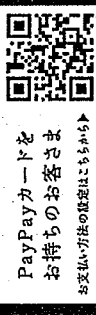 PayPayカードを
お持ちのお客さま
お支払い方法の設定はこちらから▶